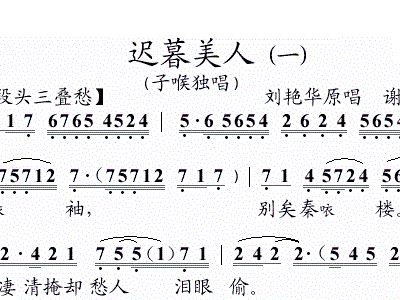 迟暮美人 (一)
(子喉独唱)
段头三叠愁】 刘艳华原唱 谢
1 7 6765 4524 | 5·6 5654 2 6 2 4 5654
75712 7·(75712 7 1 7) | 7 1 45724 56
袖, 别矣秦咴 楼。
2·421 71 7 5 5(1)71 | 2 4 2 2·(5 4 5 2
凄 清掩却 愁人 泪眼 偷。